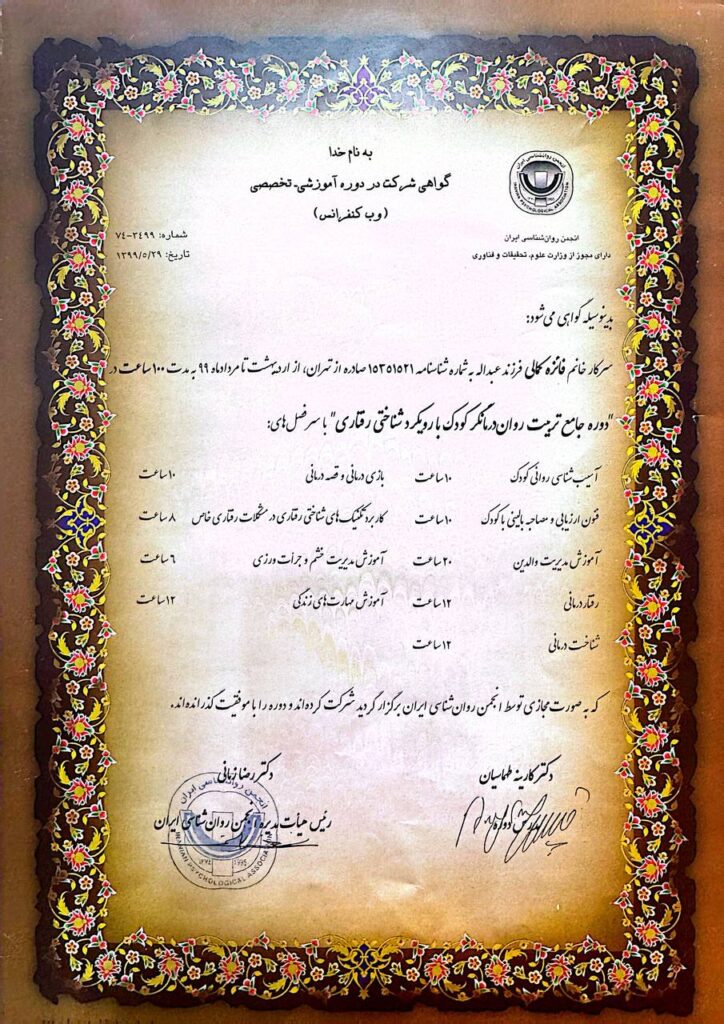 به نام خدا
گواهی شرکت در دوره آموزشی- تخصصی
(وب کنفرانس)
انجمن روان‌شناسی ایران
IRANIAN PSYCHOLOGICAL ASSOCIATION
انجمن روان‌شناسی ایران
دارای مجوز از وزارت علوم، تحقیقات و فناوری
شماره: ۳۴۹۹-۷۴
تاریخ: ۱۳۹۹/۵/۲۹
بدینوسیله گواهی می‌شود:
سرکار خانم فائزه کمالی فرزند عبداله به شماره شناسنامه ۱۵۳۵۱۵۲۱ صادره از تهران، از اردیبهشت تا مرداد ماه ۹۹ به مدت ۱۰۰ ساعت در
"دوره جامع تربیت روان‌درمانگر کودک با رویکرد شناختی رفتاری" با سرفصل‌های:
آسیب شناسی روانی کودک ۱۰ ساعت بازی درمانی و قصه درمانی ۱۰ ساعت
فنون ارزیابی و مصاحبه بالینی با کودک ۱۰ ساعت کاربرد تکنیک‌های شناختی رفتاری در مشکلات رفتاری خاص ۸ ساعت
آموزش مدیریت والدین ۲۰ ساعت آموزش مدیریت خشم و جرأت ورزی ۶ ساعت
رفتار درمانی ۱۲ ساعت آموزش مهارت‌های زندگی ۱۲ ساعت
شناخت درمانی ۱۲ ساعت
که به صورت مجازی توسط انجمن روان‌شناسی ایران برگزار گردید شرکت کرده‌اند و دوره را با موفقیت گذرانده‌اند.
دکتر کارینه طهماسیان
دکتر رضا زمانی
رئیس هیأت مدیره انجمن روان‌شناسی ایران
انجمن روان‌شناسی ایران
۱۳۷۴ 1995
IRANIAN PSYCHOLOGICAL ASSOCIATION